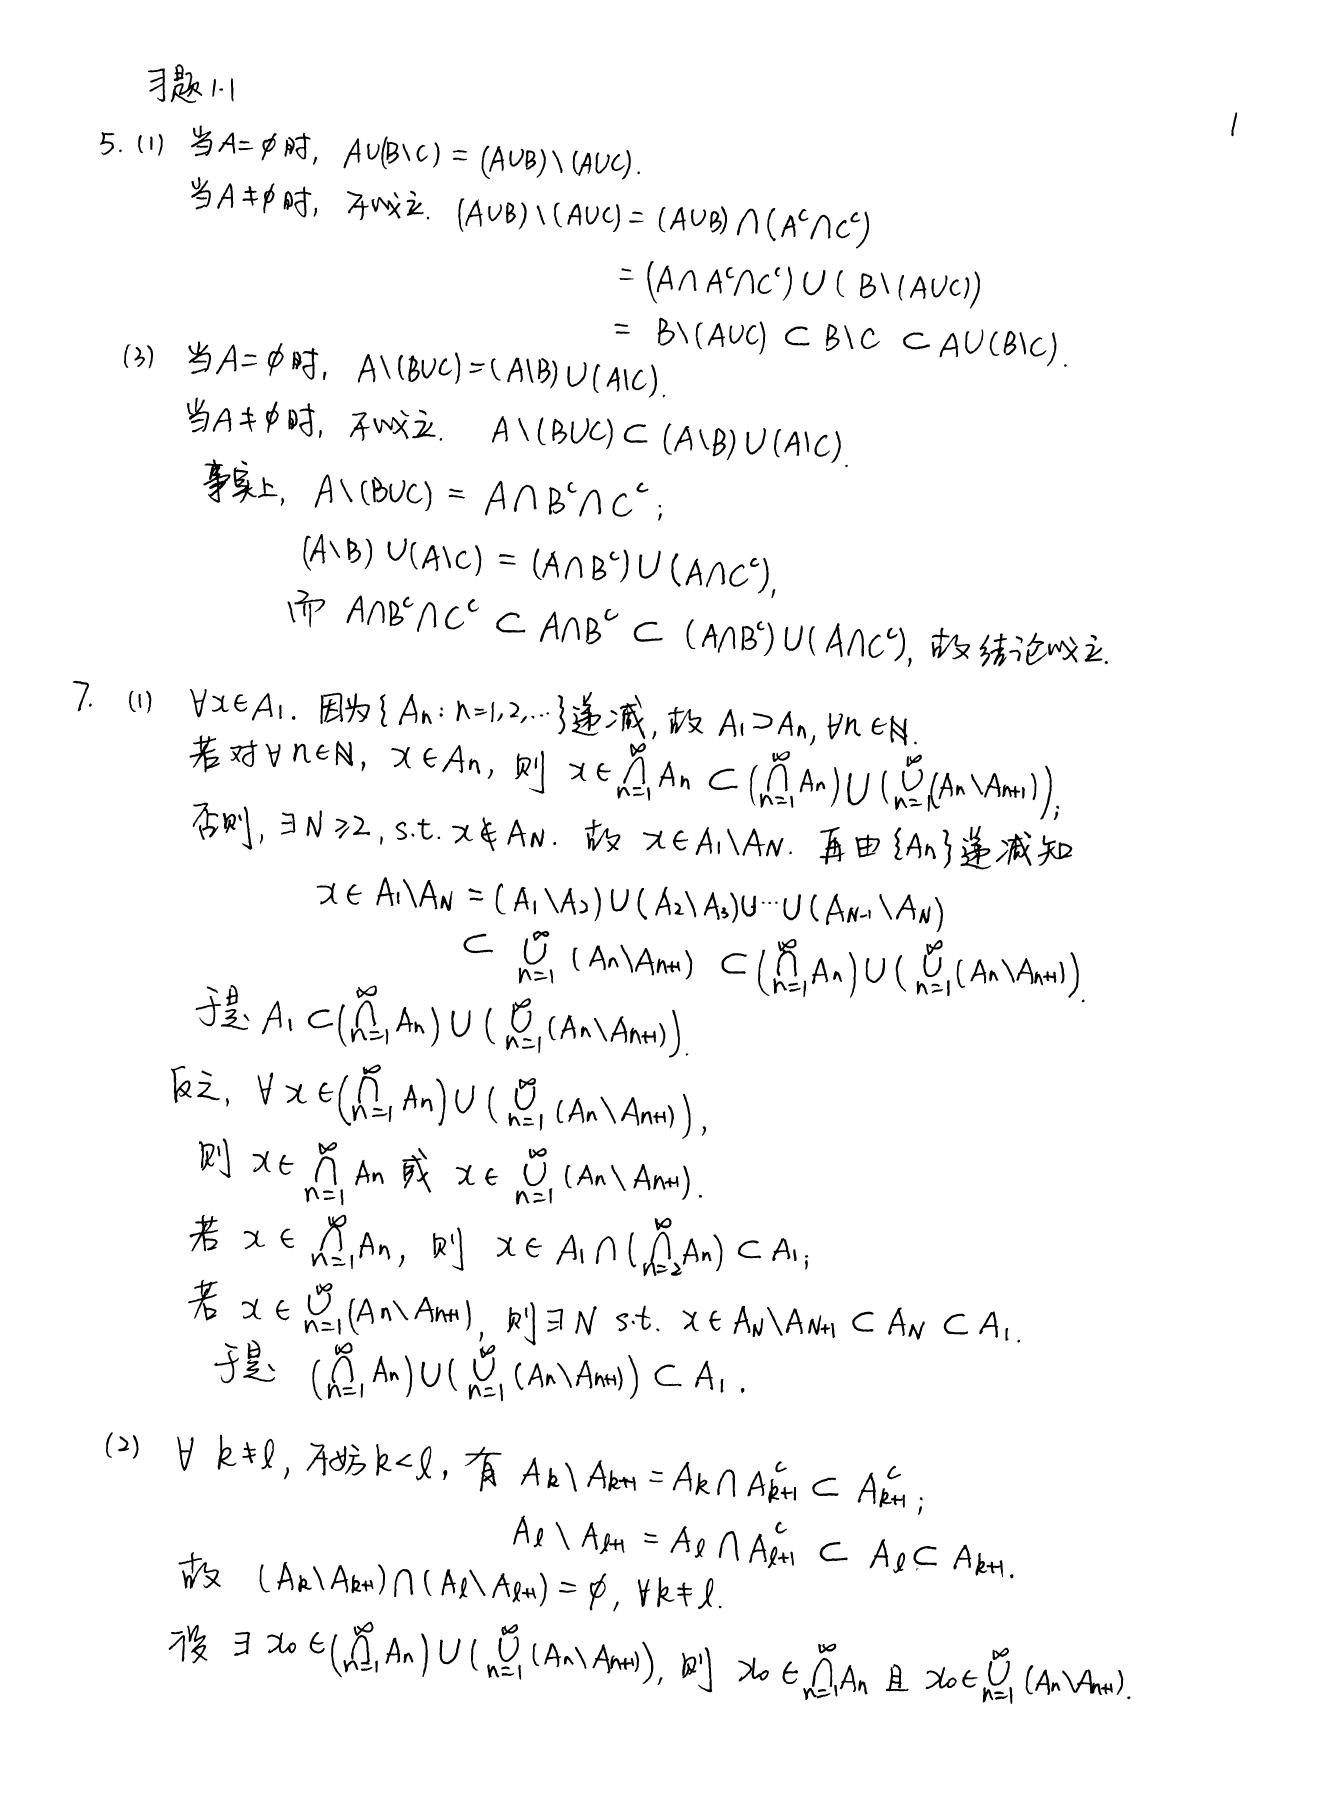 习题1.1
1
5. (1) 当A=∅时, A∪(B\C) = (A∪B)\(A∪C).
当A≠∅时, 不成立. (A∪B)\(A∪C) = (A∪B)∩(Aᶜ∩Cᶜ)
= (A∩Aᶜ∩Cᶜ)∪(B\(A∪C))
= B\(A∪C) ⊂ B\C ⊂ A∪(B\C).
(3) 当A=∅时, A\(B∪C)=(A\B)∪(A\C).
当A≠∅时, 不成立. A\(B∪C) ⊂ (A\B)∪(A\C).
事实上, A\(B∪C) = A∩Bᶜ∩Cᶜ;
(A\B)∪(A\C) = (A∩Bᶜ)∪(A∩Cᶜ),
而 A∩Bᶜ∩Cᶜ ⊂ A∩Bᶜ ⊂ (A∩Bᶜ)∪(A∩Cᶜ), 故结论成立.
7. (1) ∀x∈A₁. 因为{Aₙ: n=1,2,…}递减, 故 A₁⊃Aₙ, ∀n∈ℕ.
若对∀n∈ℕ, x∈Aₙ, 则 x∈⋂_{n=1}^∞ Aₙ ⊂ (⋂_{n=1}^∞ Aₙ)∪(⋃_{n=1}^∞ (Aₙ\Aₙ₊₁));
否则, ∃N≥2, s.t. x∉A_N. 故 x∈A₁\A_N. 再由{Aₙ}递减知
x∈A₁\A_N = (A₁\A₂)∪(A₂\A₃)∪…∪(A_{N-1}\A_N)
⊂ ⋃_{n=1}^∞ (Aₙ\Aₙ₊₁) ⊂ (⋂_{n=1}^∞ Aₙ)∪(⋃_{n=1}^∞ (Aₙ\Aₙ₊₁)).
于是 A₁⊂(⋂_{n=1}^∞ Aₙ)∪(⋃_{n=1}^∞ (Aₙ\Aₙ₊₁)).
反之, ∀x∈(⋂_{n=1}^∞ Aₙ)∪(⋃_{n=1}^∞ (Aₙ\Aₙ₊₁)),
则 x∈⋂_{n=1}^∞ Aₙ 或 x∈⋃_{n=1}^∞ (Aₙ\Aₙ₊₁).
若 x∈⋂_{n=1}^∞ Aₙ, 则 x∈A₁∩(⋂_{n=2}^∞ Aₙ)⊂A₁;
若 x∈⋃_{n=1}^∞ (Aₙ\Aₙ₊₁), 则∃N s.t. x∈A_N\A_{N+1}⊂A_N⊂A₁.
于是 (⋂_{n=1}^∞ Aₙ)∪(⋃_{n=1}^∞ (Aₙ\Aₙ₊₁))⊂A₁.
(2) ∀k≠l, 不妨k<l, 有 A_k\A_{k+1} = A_k∩A_{k+1}ᶜ ⊂ A_{k+1}ᶜ;
A_l\A_{l+1} = A_l∩A_{l+1}ᶜ ⊂ A_l ⊂ A_{k+1}.
故 (A_k\A_{k+1})∩(A_l\A_{l+1})=∅, ∀k≠l.
设∃x₀∈(⋂_{n=1}^∞ Aₙ)∪(⋃_{n=1}^∞ (Aₙ\Aₙ₊₁)), 则 x₀∈⋂_{n=1}^∞ Aₙ 且 x₀∈⋃_{n=1}^∞ (Aₙ\Aₙ₊₁).